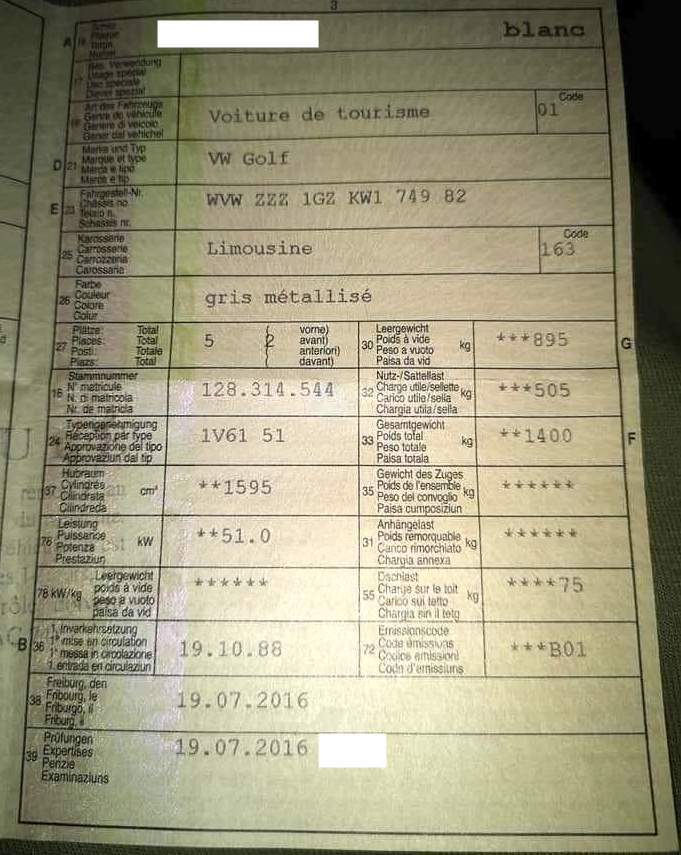 3
A 18
blanc
17 Bes. Verwendung
Usage spécial
Uso speciale
Diever spezial
19 Art des Fahrzeugs
Genre de véhicule
Genere di veicolo
Gener dal vehichel
Voiture de tourisme
Code
01
D 21 Marke und Typ
Marque et type
Marca e tipo
Marca e tip
VW Golf
E 23 Fahrgestell-Nr.
Châssis no
Telaio n.
Schassis nr.
WVW ZZZ 1GZ KW1 749 82
25 Karosserie
Carrosserie
Carrozzeria
Carossaria
Limousine
Code
163
26 Farbe
Couleur
Colore
Colur
gris métallisé
27 Plätze: Total
Places: Total
Posti: Totale
Plazs: Total
5
( 2 vorne)
avant)
anteriori)
davant)
30 Leergewicht
Poids à vide
Peso a vuoto
Paisa da vid
kg
***895
G
18 Stammnummer
N° matricule
N. di matricola
Nr. de matricla
128.314.544
32 Nutz-/Sattellast
Charge utile/sellette
Carico utile/sella
Chargia utila/sella
kg
***505
24 Typengenehmigung
Réception par type
Approvazione del tipo
Approvaziun dal tip
1V61 51
33 Gesamtgewicht
Poids total
Peso totale
Paisa totala
kg
**1400
F
37 Hubraum
Cylindrée
Cilindrata
Cilindreda
cm³
**1595
35 Gewicht des Zuges
Poids de l'ensemble
Peso del convoglio
Paisa cumposiziun
kg
******
76 Leistung
Puissance
Potenza
Prestaziun
kW
**51.0
31 Anhängelast
Poids remorquable
Carico rimorchiato
Chargia annexa
kg
******
78 kW/kg Leergewicht
poids à vide
peso a vuoto
paisa da vid
******
55 Dachlast
Charge sur le toit
Carico sul tetto
Chargia sin il tetg
kg
****75
B 36 1. Inverkehrsetzung
1re mise en circulation
1a messa in circolazione
1. entrada en circulaziun
19.10.88
72 Emissionscode
Code émissions
Codice emissioni
Code d'emissiuns
***B01
38 Freiburg, den
Fribourg, le
Friburgo, il
Friburg, il
19.07.2016
39 Prüfungen
Expertises
Perizie
Examinaziuns
19.07.2016